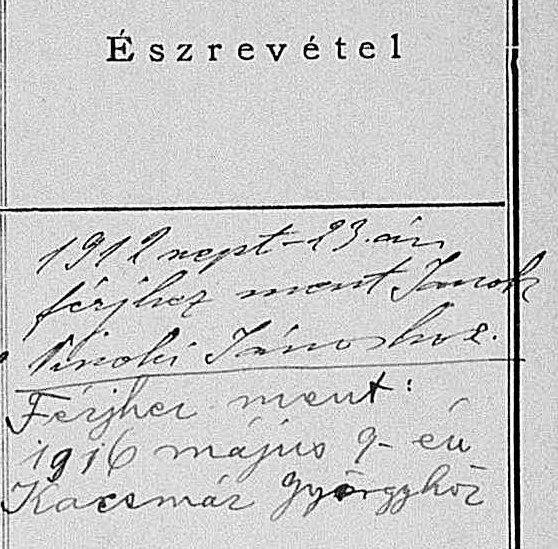 Észrevétel
1912 szept-23.án
férjhez ment Janok
Jánoshoz.
Férjhez ment:
1916 május 9-én
Kacsmár Györgyhöz